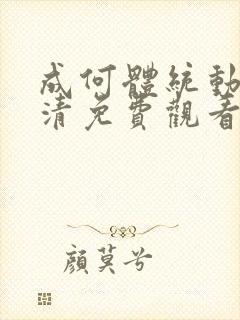 成何體統動
清免費觀看
顏莫兮